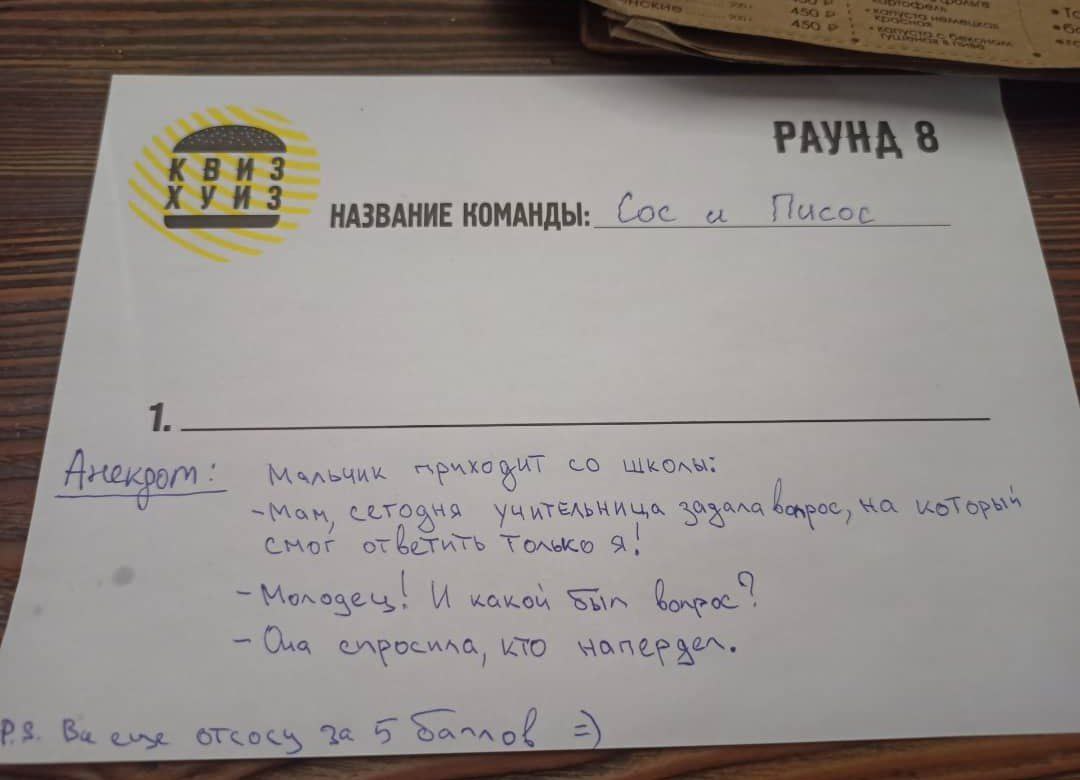 нские 200 г 450 ₽
200 г 450 ₽
картофель
• капуста немецкая
красная
• капуста с беконом
тушеная в пиве
КВИЗ
ХУИЗ
РАУНД 8
НАЗВАНИЕ КОМАНДЫ: Сос и Писос
1.
Анекдот: Мальчик приходит со школы:
- Мам, сегодня учительница задала вопрос, на который
смог ответить только я!
- Молодец! И какой был вопрос?
- Она спросила, кто напердел.
P.S. Ва еще отсосу за 5 баллов =)